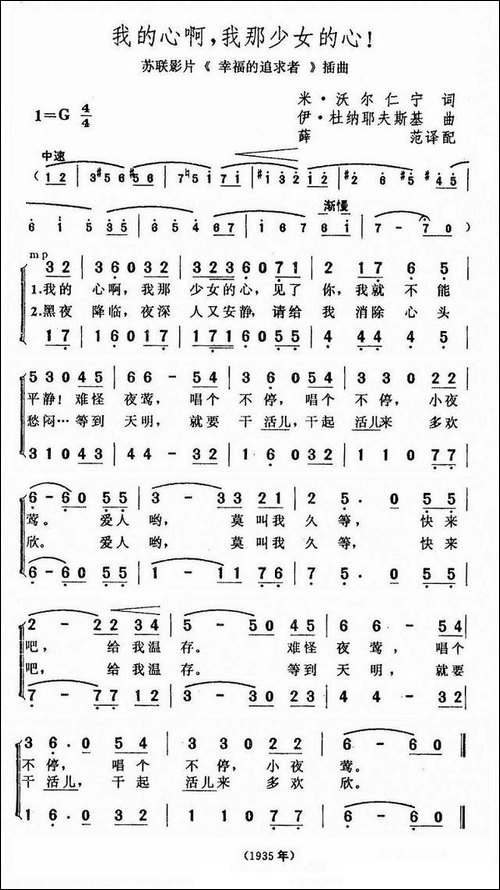 我的心啊，我那少女的心！
苏联影片《 幸福的追求者 》插曲
1=G 4/4
米·沃尔仁宁 词
伊·杜纳耶夫斯基 曲
薛 范译配
中速
渐慢
mp
3 2 | 3 6 0 3 2 | 3 2 3 6 0 7 1 | 2 · 1 7 6 5
1.我的 心啊，我那 少女的心，见了 你，我就 不能
2.黑夜 降临，夜深 人又安静，请给 我 消除 心头
1 7 | 1 6 0 1 7 |
5 3 0 4 5 | 6 6 - 5 4 | 3 6 · 0 5 4 | 3 3 0 2 2
平静！难怪 夜莺，唱个 不停，唱个 不停，小夜
愁闷…等到 天明，就要 干活儿，干起 活儿来 多欢
3 1 0 4 3 | 4 4 - 3 2 | 1 6 0 3 2 | 1 1 0 7 7
6 - 6 0 5 5 | 3 - 3 3 2 1 | 2 5 · 0 5 5
莺。 爱人 哟， 莫叫我 久等， 快来
欣。 爱人 哟， 莫叫我 久等， 快来
6 - 6 0 5 5 | 1 - 1 1 7 6 | 7 5 · 0 5 5
2 - 2 2 3 4 | 5 - 5 0 4 5 | 6 6 - 5 4
吧， 给我温 存。 难怪 夜 莺， 唱个
吧， 给我温 存。 等到 天 明， 就要
7 - 7 7 1 2 | 3 - 3 0 2 3 | 4 4 - 3 2
3 6 · 0 5 4 | 3 3 0 2 2 | 6 - 6 0 ‖
不 停， 唱个 不 停， 小夜 莺。
干 活儿， 干起 活儿来 多欢 欣。
1 6 · 0 3 2 | 1 1 0 7 7 | 6 - 6 0 ‖
(1935 年)